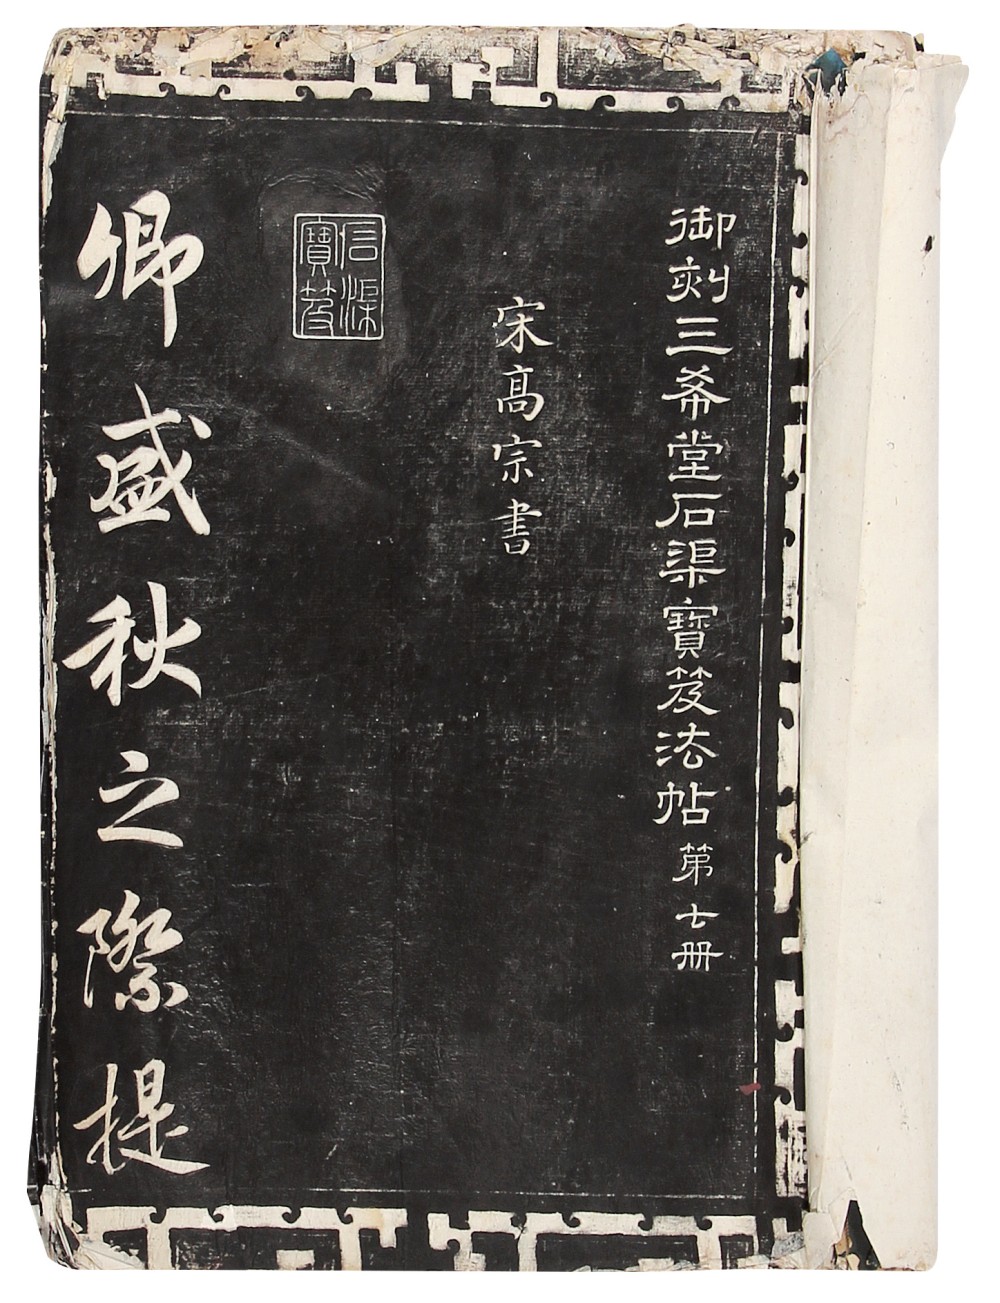 御刻三希堂石渠寶笈法帖第七册
宋高宗書
石渠寶笈
卿盛秋之際提